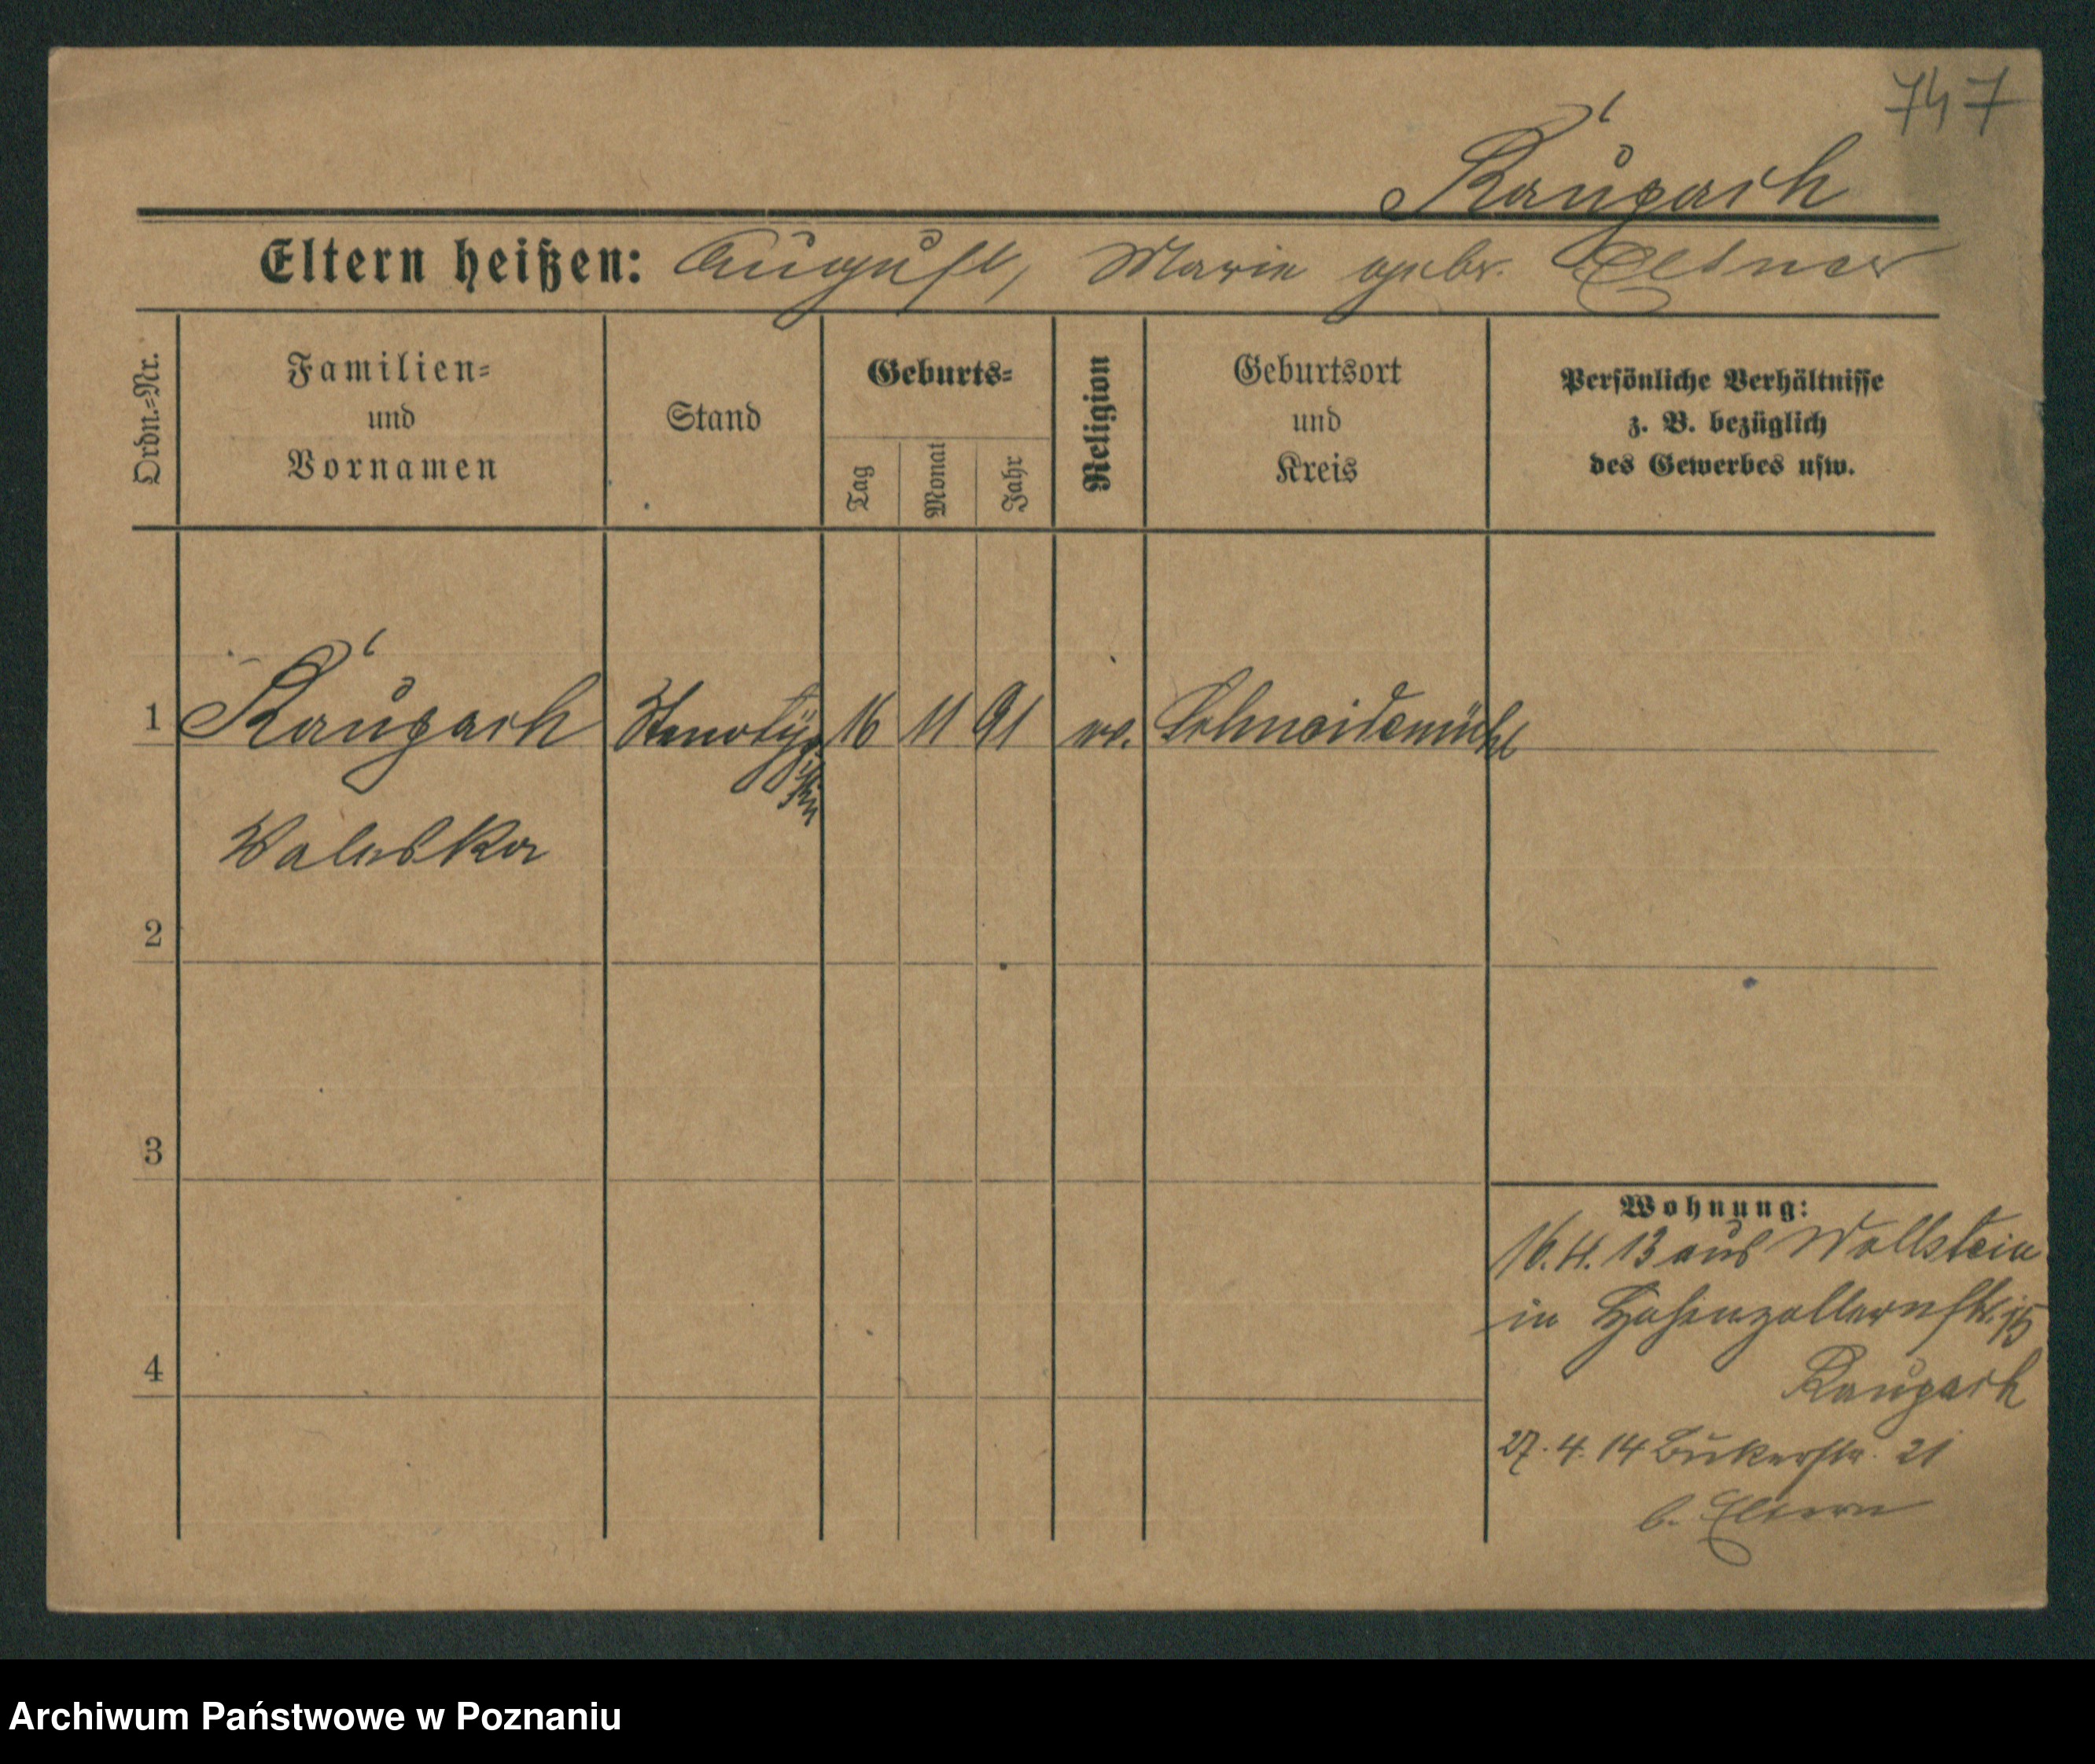 747
Raupach
Eltern heißen: August, Marie gebr. Elsner
Ordn.-Nr.
Familien-
und
Vornamen
Stand
Geburts-
Tag
Monat
Jahr
Religion
Geburtsort
und
Kreis
Persönliche Verhältnisse
z. B. bezüglich
des Gewerbes usw.
1 Raupach Stenotypistin 16 11 91 ev. Schneidemühl
Waleska
2
3
4
Wohnung:
16. 4. 13 aus Wollstein
in Hohenzollernstr. 15
Raupach
27. 4. 14 Bukerstr. 21
b. Eltern
Archiwum Państwowe w Poznaniu